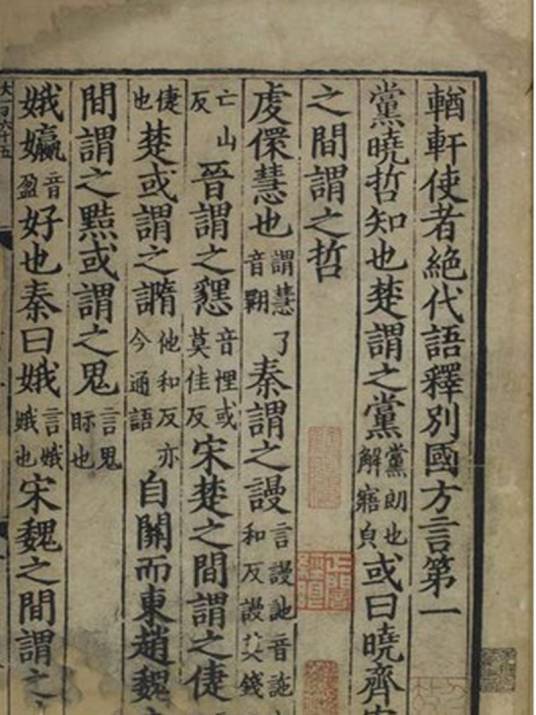 輶軒使者絶代語釋別國方言第一
黨曉哲知也楚謂之黨黨朗也解寤皃或曰曉齊
之間謂之哲
虔儇慧也謂慧了音翾秦謂之謾言謾訑音訑和反謾莫錢
亡山反晉謂之㦟音悝或莫佳反宋楚之間謂之倢
倢也楚或謂之䜏他和反亦今通語自關而東趙魏
間謂之黠或謂之鬼言鬼眎也
娥㜲音盈好也秦曰娥言娥娥也宋魏之間謂之
大一百六十五